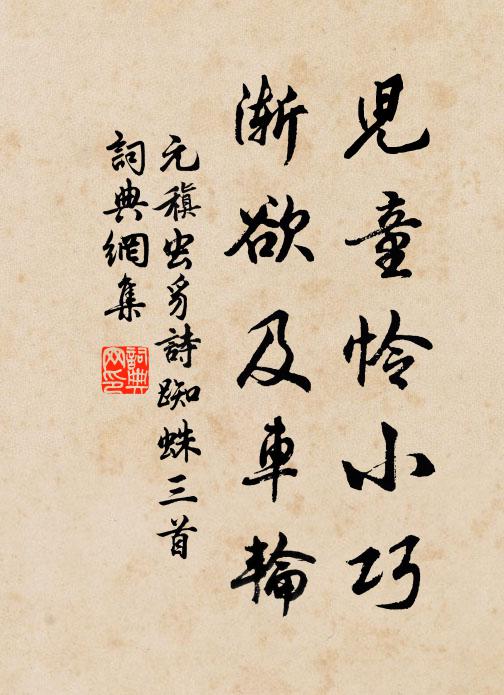 兒童憐小巧
漸欲及車輪
元稹虫豸詩蜘蛛三首
詞典網集
詞典網印